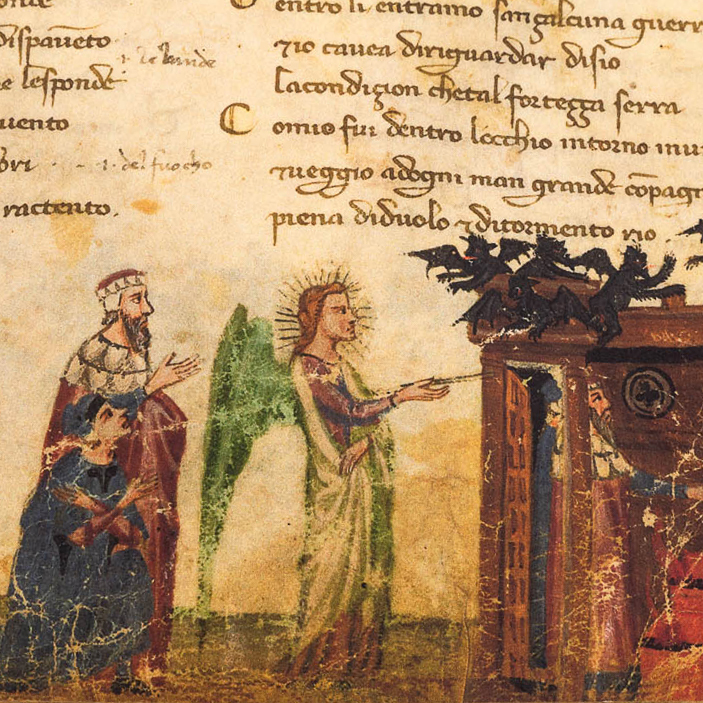 dispaueto
.i. le bande
e lesponde
uento
bri .i. del fuocho
rattento.
D entro li entramo san galcuna guerr
7io cauea diriguardar disio
lacondizion chetal fortezza serra
C omio fui dentro locchio intorno inui
7ueggio adogni man grande cōpagn
piena diduolo 7ditormento rio.